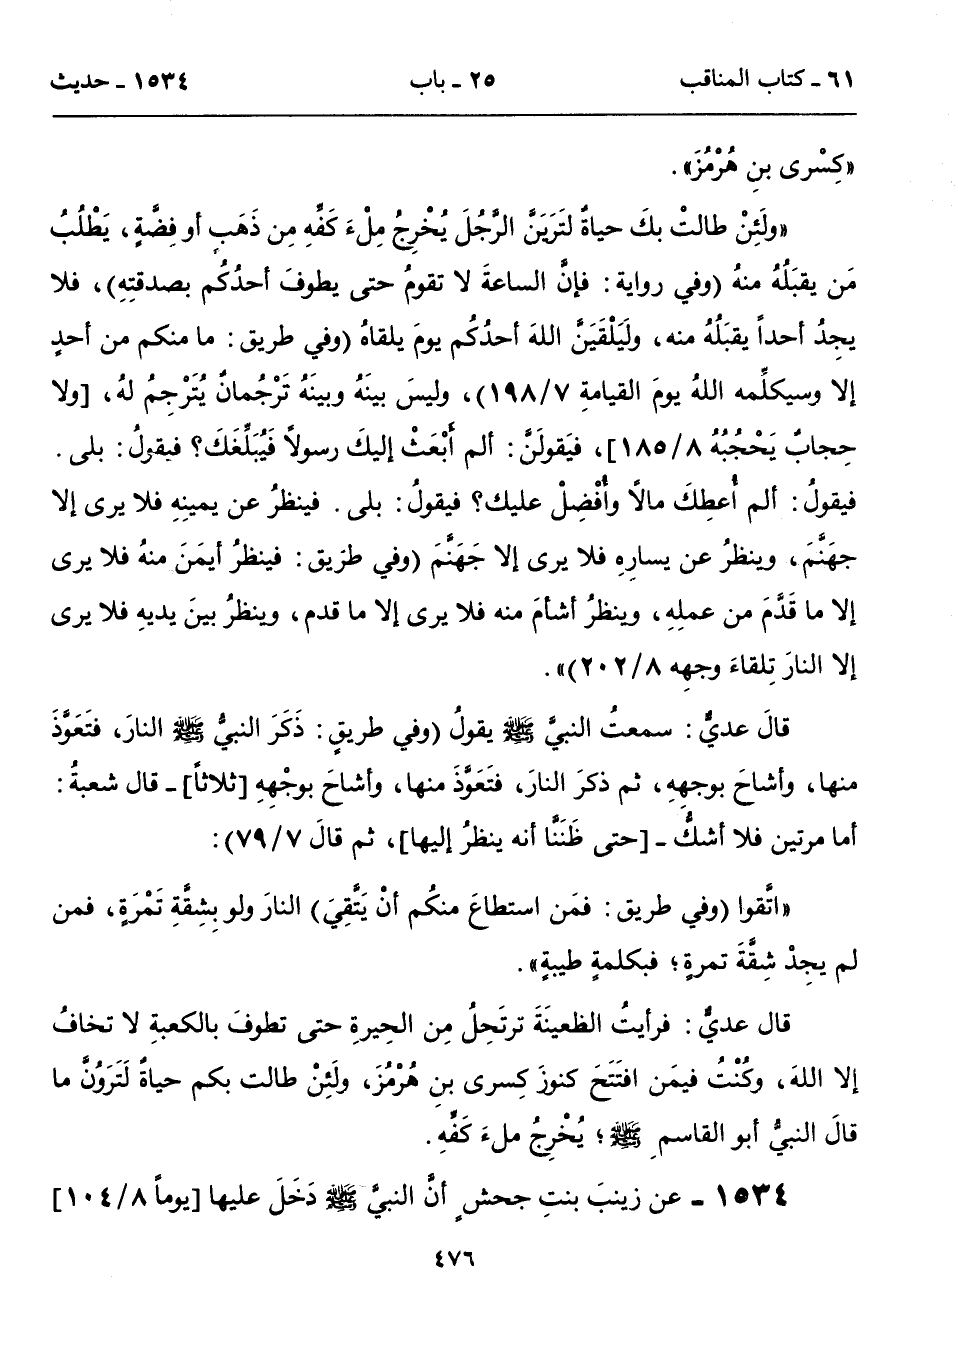 ٦١ ـ كتاب المناقب ٢٥ ـ باب ١٥٣٤ ـ حديث
«كِسْرى بنِ هُرْمُزَ» .
«ولَئِنْ طالتْ بكَ حياةٌ لتَرَيَنَّ الرَّجُلَ يُخْرِجُ مِلْءَ كَفِّه مِن ذَهَبٍ أو فِضَّةٍ، يَطْلُبُ
مَن يقبَلُهُ منهُ (وفي رواية: فإنَّ الساعةَ لا تقومُ حتى يطوفَ أحدُكُم بصدقتِهِ)، فلا
يجِدُ أحداً يقبَلُهُ منه، ولَيَلْقَيَنَّ اللهَ أحدُكُم يومَ يلقاهُ (وفي طريق: ما منكم من أحدٍ
إلا وسيكلِّمه اللهُ يومَ القيامةِ ١٩٨/٧)، وليسَ بينَهُ وبينَهُ تَرْجُمانٌ يُتَرْجِمُ لهُ، [ولا
حِجابٌ يَحْجُبُهُ ١٨٥/٨]، فيَقولَنَّ: ألم أَبْعَثْ إليكَ رسولاً فَيُبَلِّغَكَ؟ فيقولُ: بلى.
فيقولُ: ألم أُعطِكَ مالًا وأُفْضِلْ عليك؟ فيقولُ: بلى. فينظرُ عن يمينِهِ فلا يرى إلا
جهَنَّمَ، وينظرُ عن يسارِهِ فلا يرى إلا جَهَنَّمَ (وفي طرَيق: فينظرُ أيمَنَ منهُ فلا يرى
إلا ما قَدَّمَ من عملِهِ، وينظرُ أشأمَ منه فلا يرى إلا ما قدم، وينظرُ بينَ يديهِ فلا يرى
إلا النارَ تِلقاءَ وجهِه ٢٠٢/٨)» .
قالَ عديٌّ: سمعتُ النبيَّ ﷺ يقولُ (وفي طريقٍ: ذَكَرَ النبيُّ ﷺ النارَ، فتَعَوَّذَ
منها، وأشاحَ بوجهِهِ، ثم ذكرَ النارَ، فتَعَوَّذَ منها، وأشاحَ بوجْهِهِ [ثلاثاً] ـ قال شعبةُ:
أما مرتين فلا أشكُّ ـ [حتى ظَنَنَّا أنه ينظرُ إليها]، ثم قالَ ٧٩/٧):
«اتَّقوا (وفي طريق: فمَن استطاعَ منكُم أنْ يَتَّقِيَ) النارَ ولو بِشِقَّةِ تَمْرَةٍ، فمن
لم يجِدْ شِقَّةَ تمرةٍ؛ فبكلمةٍ طيبةٍ» .
قال عديٌّ: فرأيتُ الظعينَةَ ترتَحِلُ مِن الحِيرةِ حتى تطوفَ بالكعبةِ لا تخافُ
إلا اللهَ، وكُنْتُ فيمَن افتَتَحَ كنوزَ كِسرى بنِ هُرْمُزَ، ولَئِنْ طالت بكم حياةٌ لَتَرَوُنَّ ما
قالَ النبيُّ أبو القاسمِ ﷺ؛ يُخْرِجُ ملءَ كَفِّهِ .
١٥٣٤ ـ عن زينبَ بنتِ جحشٍ أنَّ النبيَّ ﷺ دَخَلَ عليها [يوماً ١٠٤/٨]
٤٧٦